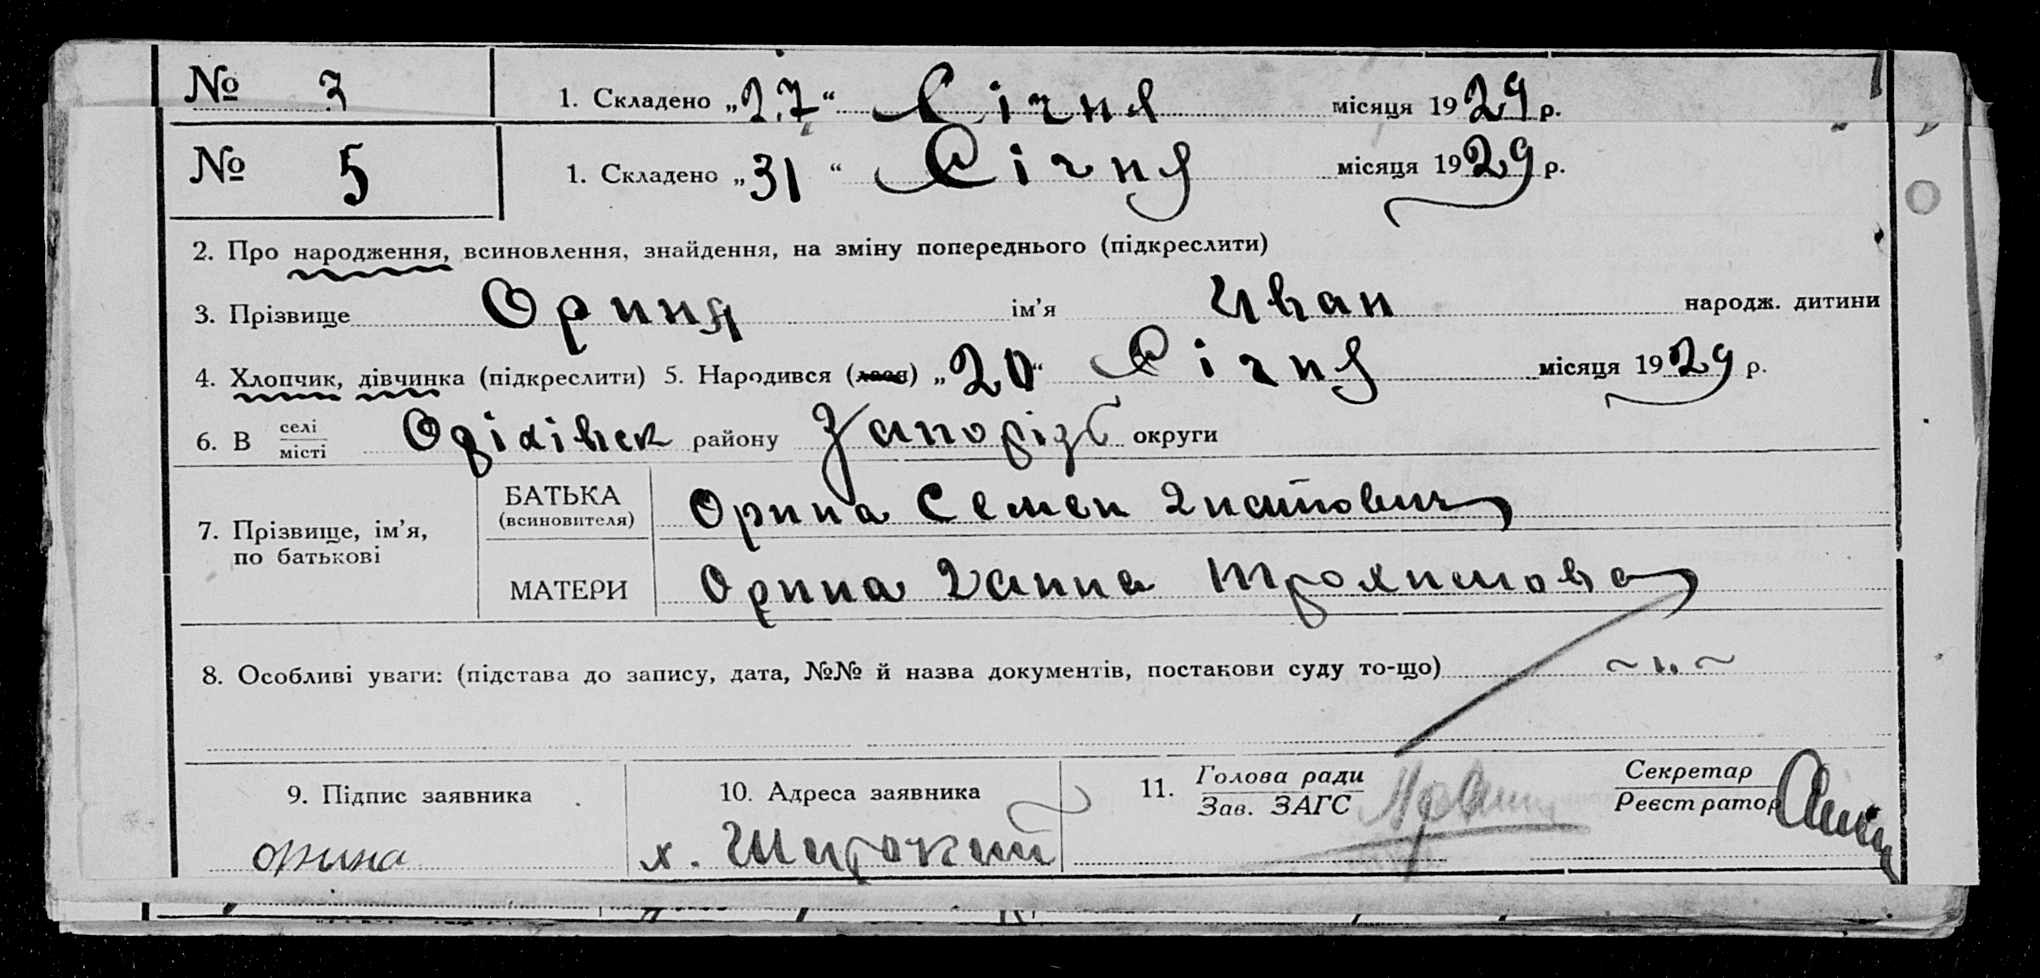 № 3 1. Складено „27“ Січня місяця 1929 р.
№ 5 1. Складено „31“ Січня місяця 1929 р.
2. Про народження, всиновлення, знайдення, на зміну попереднього (підкреслити)
3. Прізвище Ориня ім’я Иван народж. дитини
4. Хлопчик, дівчинка (підкреслити) 5. Народився (лася) „20“ Січня місяця 1929 р.
6. В селі Оріхівськ району Запорізь округи
місті
7. Прізвище, ім’я, по батькові
БАТЬКА (всиновителя) Орина Семен Гнатович
МАТЕРИ Орина Ганна Трохимова
8. Особливі уваги: (підстава до запису, дата, №№ й назва документів, постанови суду то-що) ~ „ ~
9. Підпис заявника 10. Адреса заявника 11. Голова ради Секретар
Зав. ЗАГС Реєстратор
орина х. Широкий